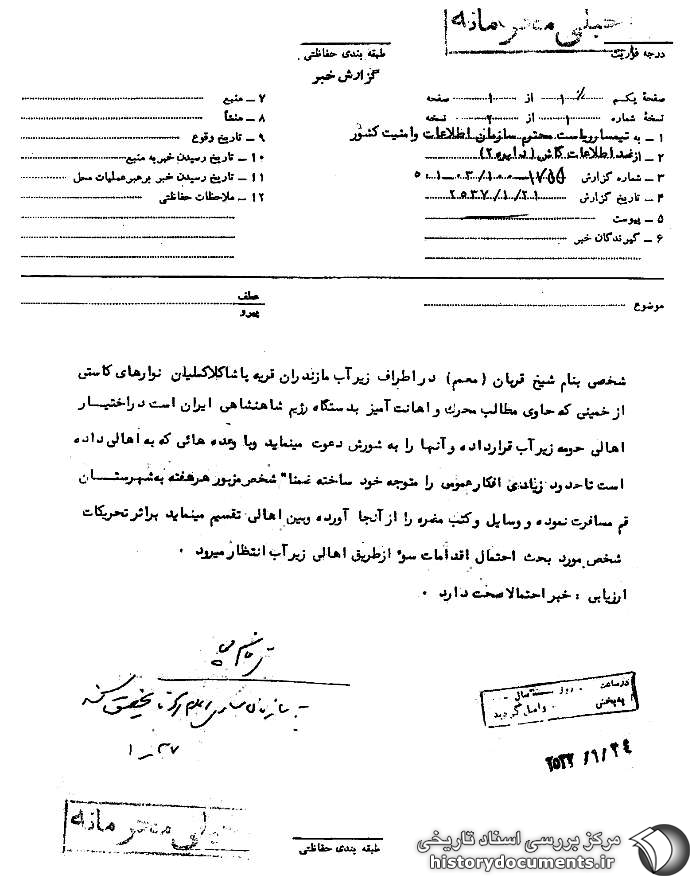 خیلی محرمانه
درجه فوریت
طبقه بندی حفاظتی
گزارش خبر
صفحهٔ یکم ۱ از ۱ صفحه
نسخهٔ شماره ۱ از ۲ نسخه
۱ ـ به تیمسار ریاست محترم سازمان اطلاعات وامنیت کشور
۲ ـ از ضد اطلاعات گاش (دایره ۲)
۳ ـ شماره گزارش
۴ ـ تاریخ گزارش ۲۵۳۷/۱/۲۱
۵ ـ پیوست
۶ ـ گیرندگان خبر
۷ ـ منبع
۸ ـ منشأ
۹ ـ تاریخ وقوع
۱۰ ـ تاریخ رسیدن خبر به منبع
۱۱ ـ تاریخ رسیدن خبر برهبر عملیات محل
۱۲ ـ ملاحظات حفاظتی
موضوع
عطف
پیرو
شخصی بنام شیخ قربان (معمم) در اطراف زیرآب مازندران قریه پاشاکلاکملیان نوارهای کاستی
از خمینی که حاوی مطالب محرک و اهانت آمیز بدستگاه رژیم شاهنشاهی ایران است دراختیار
اهالی حومه زیرآب قرارداده و آنها را به شورش دعوت مینماید وبا وعده هائی که به اهالی داده
است تاحدود زیادی افکارعمومی را متوجه خود ساخته ضمنا" شخص مزبور هرهفته به شهرستان
قم مسافرت نموده و وسایل وکتب مضره را از آنجا آورده وبین اهالی تقسیم مینماید براثر تحریکات
شخص مورد بحث احتمال اقدامات سوء ازطریق اهالی زیرآب انتظار میرود .
ارزیابی : خبر احتمالا صحت دارد .
در ساعت روز سال
به بخش واصل گردید
خیلی محرمانه
طبقه بندی حفاظتی
مرکز بررسی اسناد تاریخی
historydocuments.ir